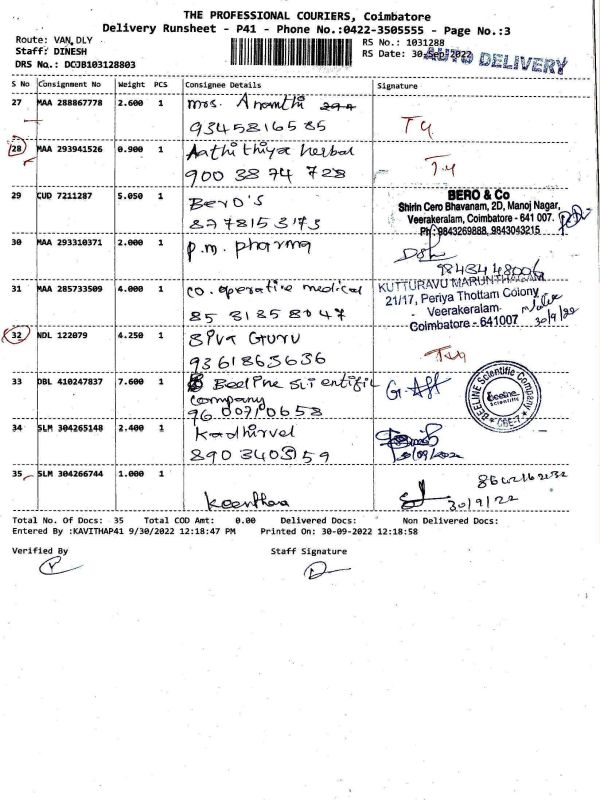 THE PROFESSIONAL COURIERS, Coimbatore
Delivery Runsheet - P41 - Phone No.:0422-3505555 - Page No.:3
Route: VAN,DLY
Staff: DINESH
DRS No.: DCJB103128803
RS No.: 1031288
RS Date: 30-Sep-2022
AUTO DELIVERY
S No Consignment No Weight PCS Consignee Details Signature
27 MAA 288867778 2.600 1 Mrs. Ananthi
9345816585
28 MAA 293941526 0.900 1 Aathithiya herbal
900 38 74 728
29 CUD 7211287 5.050 1 BERO'S
8778153173
BERO & Co
Shirin Cero Bhavanam, 2D, Manoj Nagar,
Veerakeralam, Coimbatore - 641 007.
Ph: 9843269888, 9843043215
30 MAA 293310371 2.000 1 P.M. pharma
31 MAA 285733509 4.000 1 CO. operative medical
85 31358047
KUTTURAVU MARUNTHAGAM
21/17, Periya Thottam Colony
Veerakeralam
Coimbatore - 641007
30/9/22
32 NDL 122079 4.250 1 SIVA GURU
9361863636
33 DBL 410247837 7.600 1 Beeline scientific
company
9600710658
BEELINE Scientific Company
beeline
Scientific
CBE-7
34 SLM 304265148 2.400 1 Kadhirvel
890340359
35 SLM 304266744 1.000 1 Keerthana
30/9/22
Total No. Of Docs: 35 Total COD Amt: 0.00 Delivered Docs: Non Delivered Docs:
Entered By :KAVITHAP41 9/30/2022 12:18:47 PM Printed On: 30-09-2022 12:18:58
Verified By Staff Signature